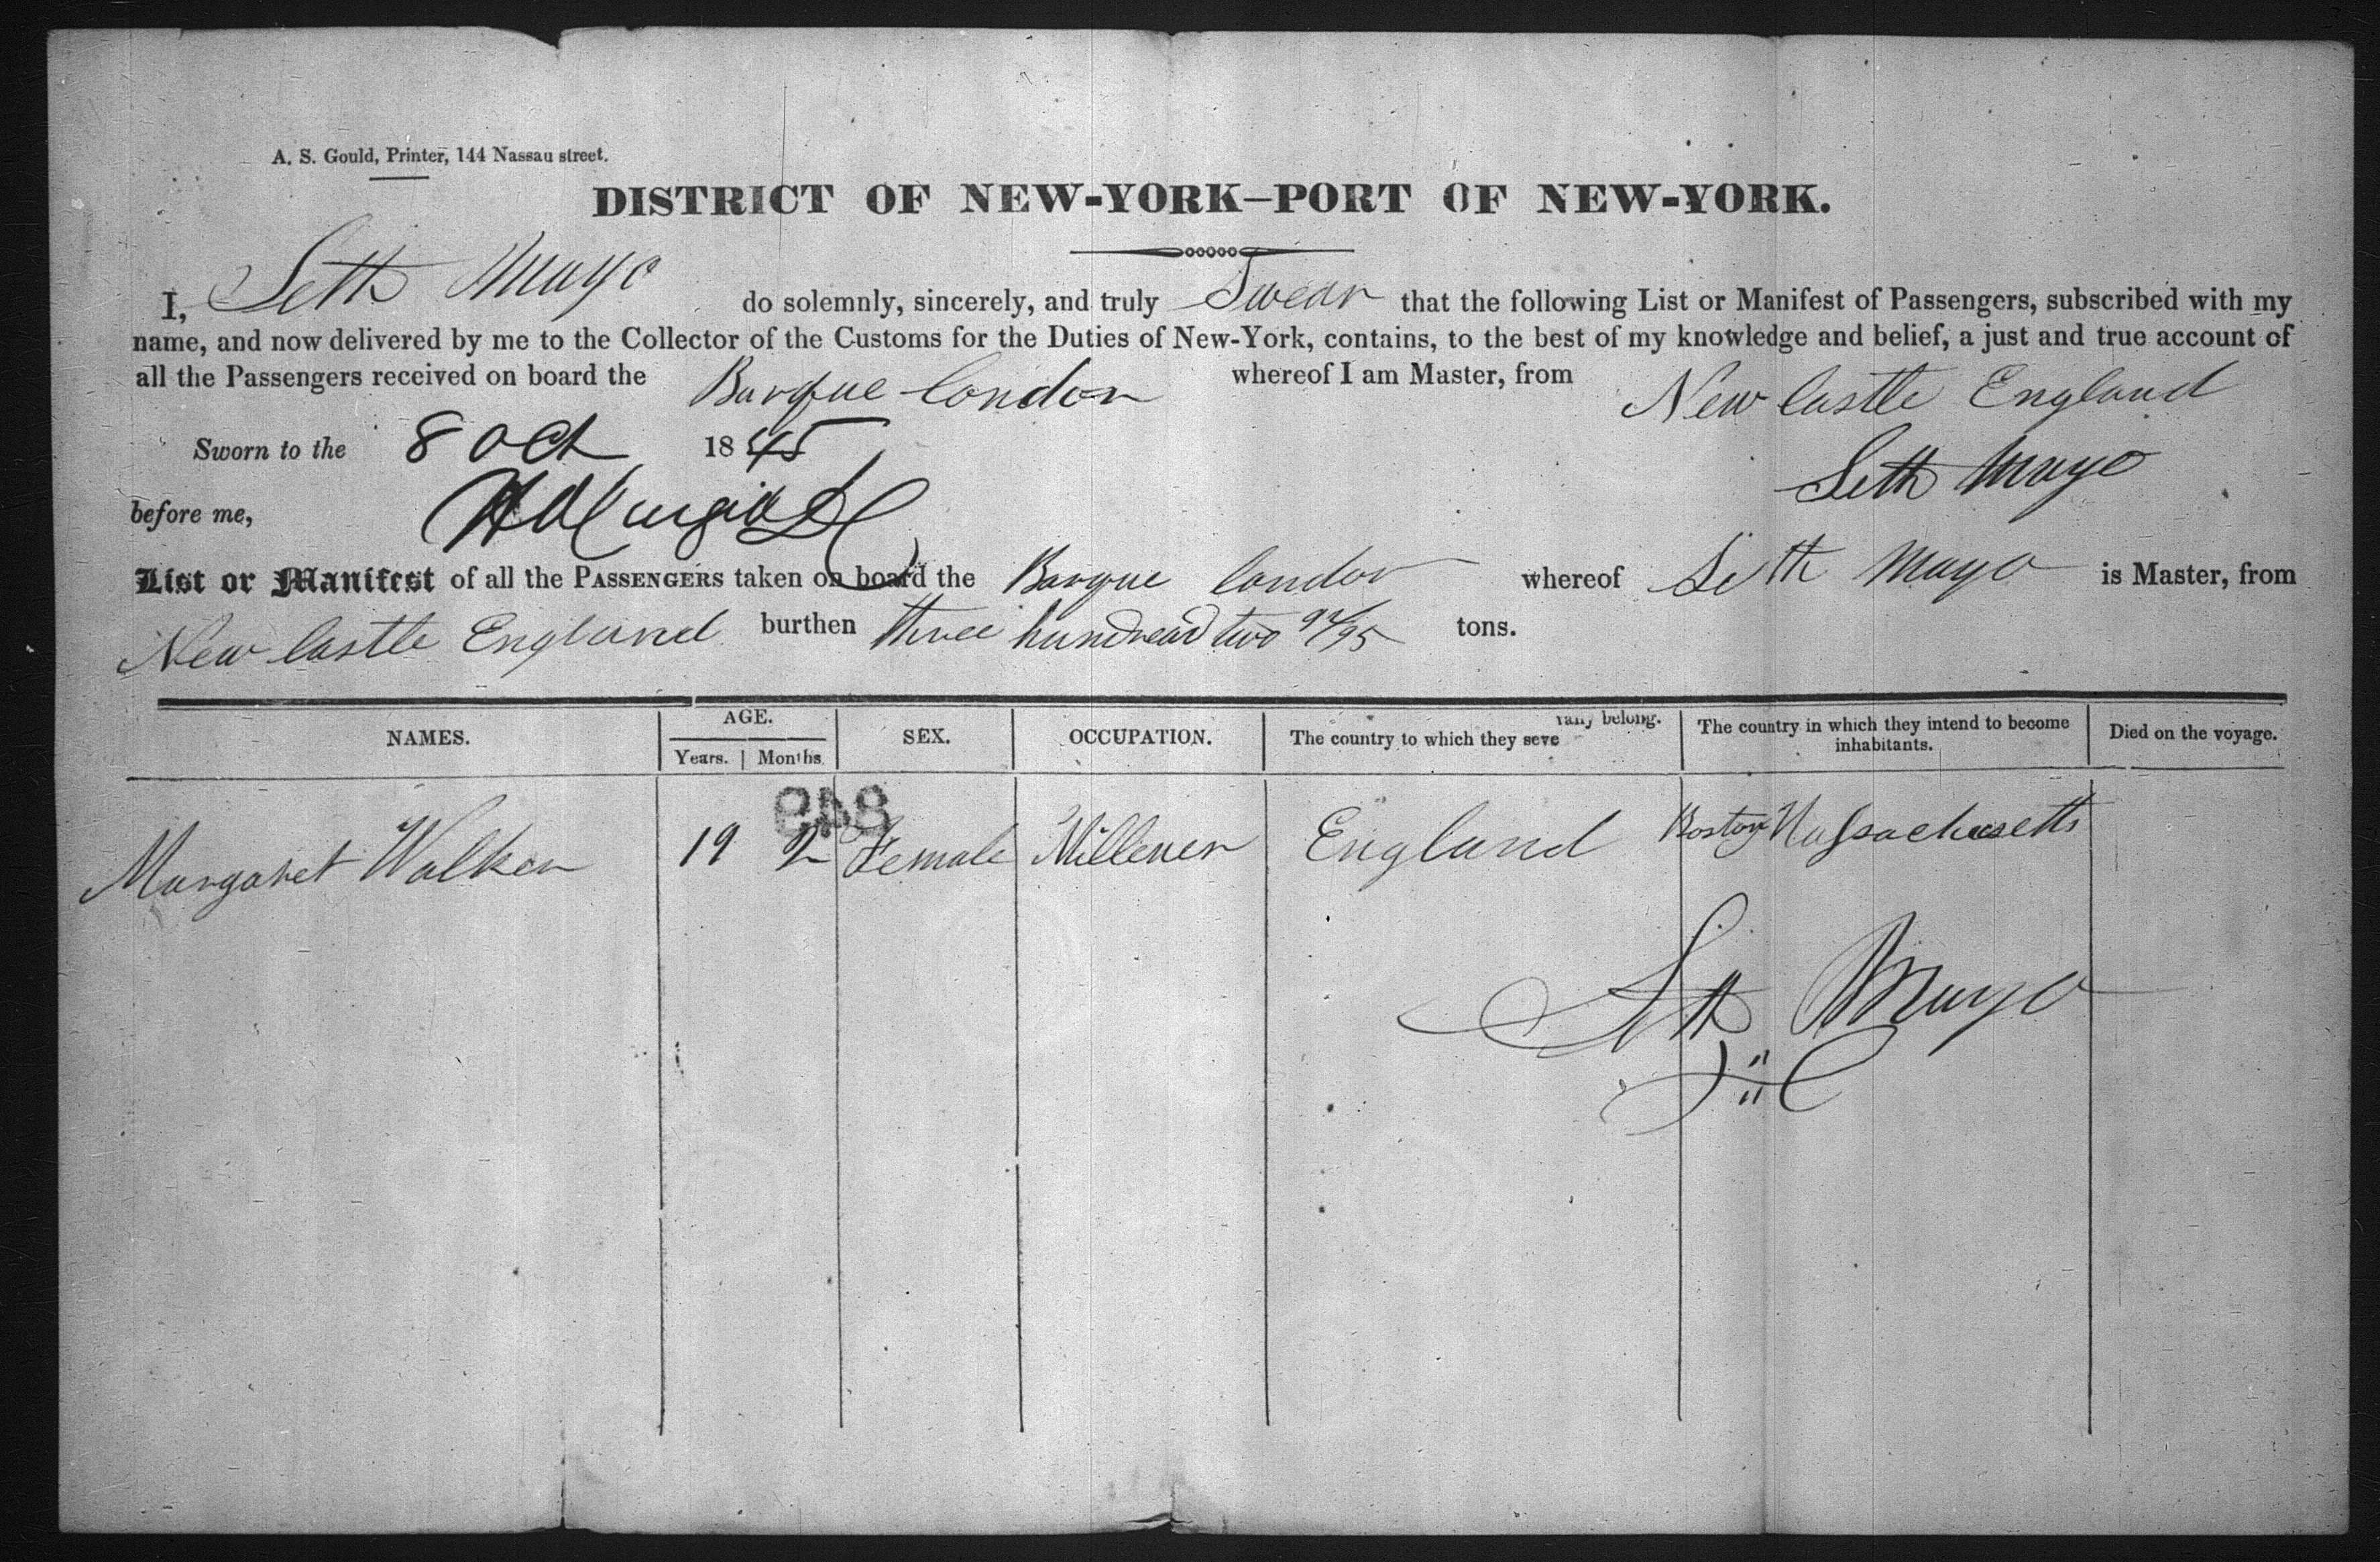 A. S. Gould, Printer, 144 Nassau street.
DISTRICT OF NEW-YORK—PORT OF NEW-YORK.
I, Seth Mayo do solemnly, sincerely, and truly Swear that the following List or Manifest of Passengers, subscribed with my
name, and now delivered by me to the Collector of the Customs for the Duties of New-York, contains, to the best of my knowledge and belief, a just and true account of
all the Passengers received on board the Barque London whereof I am Master, from New Castle England
Sworn to the 8 Oct 1845 Seth Mayo
before me,
List or Manifest of all the PASSENGERS taken on board the Barque London whereof Seth Mayo is Master, from
New Castle England burthen three hundread two 92/95 tons.
NAMES. AGE. SEX. OCCUPATION. The country to which they severally belong. The country in which they intend to become inhabitants. Died on the voyage.
Years. Months.
849
Margaret Walker 19 2 Female Millener England Boston Massachusetts
Seth Mayo